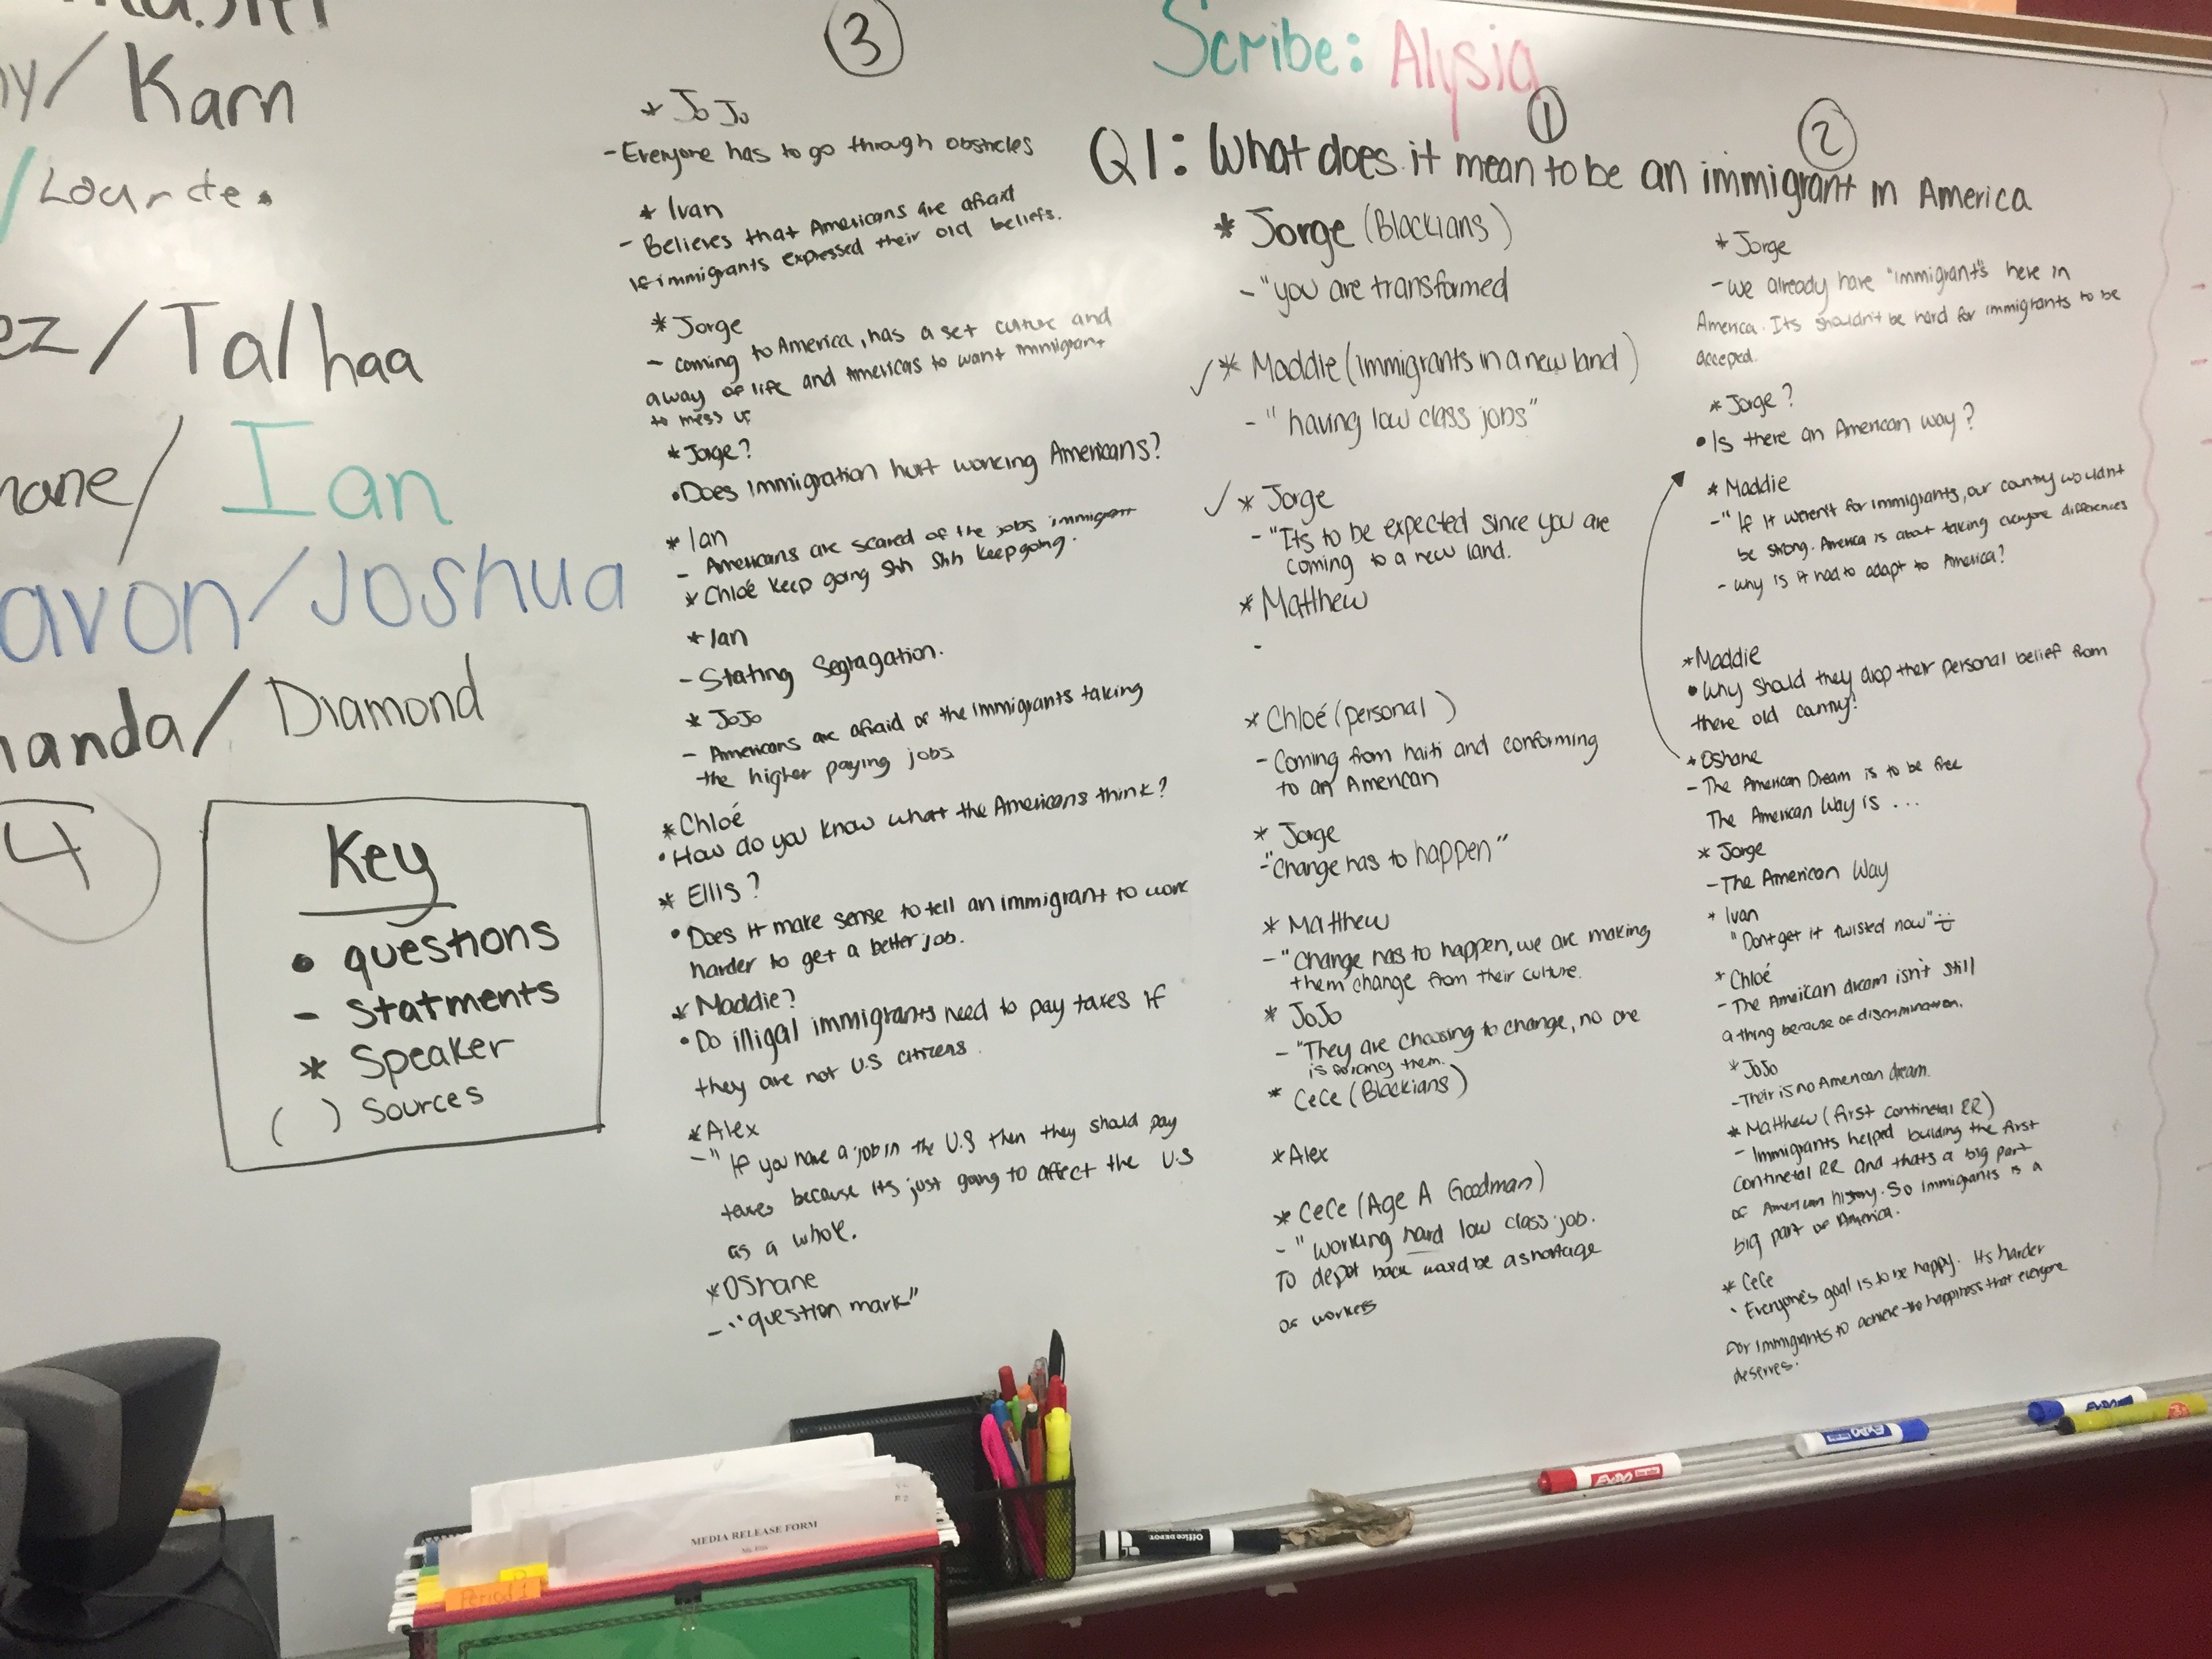 Karn
Lourde.
Talhaa
Ian
Joshua
Diamond
4
Key
• questions
- Statments
* Speaker
( ) Sources
3
* JoJo
- Everyone has to go through obsticles
* Ivan
- Believes that Americans are afraid
if immigrants expressed their old beliefs.
* Jorge
- coming to America, has a set culture and
away of life and Americas to want immigrant
to mess up
* Jorge?
• Does Immigration hurt working Americans?
* Ian
- Americans are scared of the jobs immigrant
* Chloé keep going shh shh keep going.
* Ian
- Stating Segragation.
* JoJo
- Americans are afraid of the immigrants taking
the higher paying jobs
* Chloé
• How do you know what the Americans think?
* Ellis?
• Does it make sense to tell an immigrant to work
harder to get a better job.
* Maddie?
• Do illigal immigrants need to pay taxes if
they are not U.S citizens.
* Alex
- " If you have a job in the U.S then they should pay
taxes because its just going to affect the U.S
as a whole.
* OShane
- "question mark"
Scribe: Alysia
1
2
Q1: What does it mean to be an immigrant in America
* Jorge (Blackians)
- "you are transformed
* Maddie (Immigrants in a new land)
- " having low class jobs"
* Jorge
- "Its to be expected since you are
coming to a new land.
* Matthew
-
* Chloé (personal)
- Coming from haiti and conforming
to an American
* Jorge
- "Change has to happen"
* Matthew
- "Change has to happen, we are making
them change from their culture.
* JoJo
- "They are choosing to change, no one
is forcing them.
* CeCe (Blackians)
* Alex
* CeCe (Age A Goodman)
- " working hard low class job.
To depot back would be a shortage
of workers
* Jorge
- we already have "immigrants" here in
America. Its shouldn't be hard for immigrants to be
acceped.
* Jorge?
• Is there an American way?
* Maddie
- " If it weren't for immigrants, our country wouldnt
be strong. America is about taking everyone differences
- why is it had to adapt to America?
* Maddie
• Why should they drop their personal belief from
there old
* Oshane
- The American Dream is to be free
The American Way is ...
* Jorge
- The American Way
* Ivan
" Dont get it twisted now"
* Chloé
- The American dream isn't still
a thing because of discrimination.
* JoJo
- Their is no American dream.
* Matthew (first continetal RR)
- Immigrants helped building the first
continetal RR and thats a big part
of American history. So immigrants is a
big part of America.
* CeCe
` Everyone's goal is to be happy. Its harder
for immigrants to achieve the happiness that everyone
deserves.
MEDIA RELEASE FORM
Period 1
Office DEPOT
EXPO
EXPO
EXPO